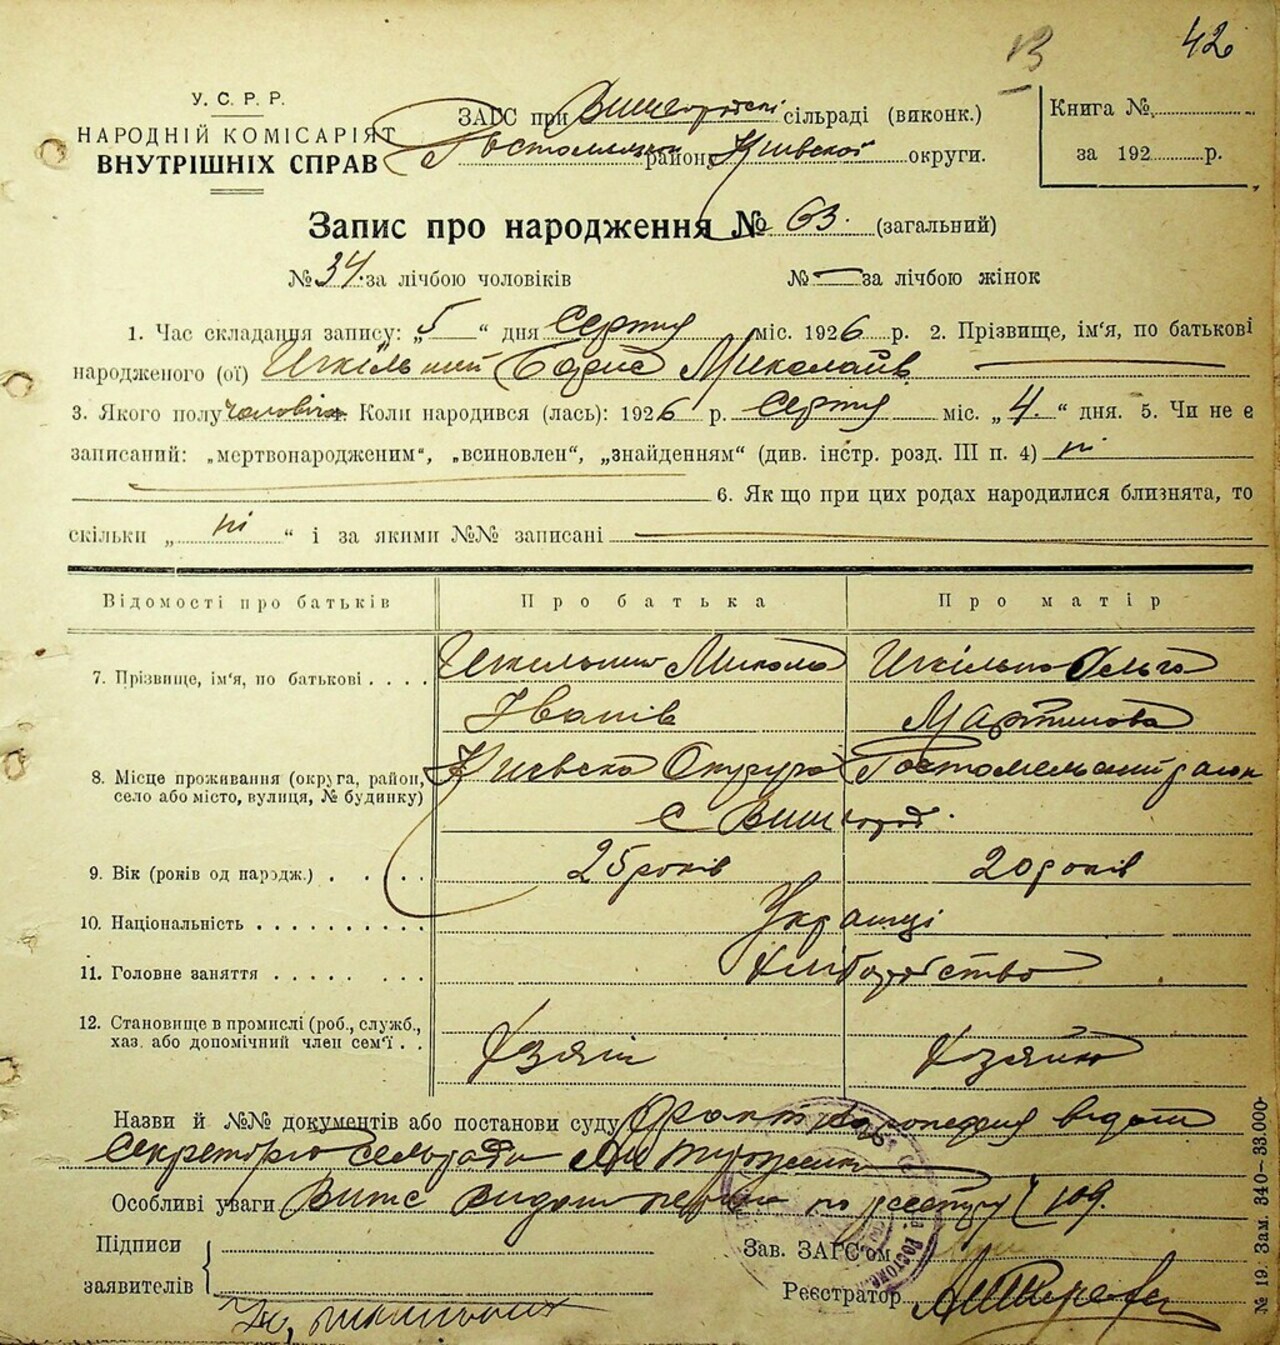 42
У. С. Р. Р.
НАРОДНІЙ КОМІСАРІЯТ
ВНУТРІШНІХ СПРАВ
ЗАГС при Вишгородскі сільраді (виконк.)
району Київской округи.
Книга №
за 192 р.
Запис про народження № 63. (загальний)
№ 34. за лічбою чоловіків № — за лічбою жінок
1. Час складання запису: „5“ дня Серпня міс. 1926 р. 2. Прізвище, ім‘я, по батькові
народженого (ої) Шкільний Борис Миколаїв
3. Якого полу чоловіча. Коли народився (лась): 1926 р. Серпня міс. „4.“ дня. 5. Чи не є
записаний: „мертвонародженим“, „всиновлен“, „знайденням“ (див. інстр. розд. III п. 4) ні
6. Як що при цих родах народилися близнята, то
скільки „ні“ і за якими №№ записані
Відомості про батьків Про батька Про матір
7. Прізвище, ім‘я, по батькові . . . . Шкільний Микола Шкільна Ольга
Іванів Мартинова
8. Місце проживання (округа, район, село або місто, вулиця, № будинку) Киевска Округа Гостомельский район
с Вишгород.
9. Вік (років од народж.) . . . . 25 років 20 років
10. Національність . . . . . . . . . . Українці
11. Головне заняття . . . . . . . . Хліборобство
12. Становище в промислі (роб., служб., хаз. або допомічний член сем‘ї . . Хазяїн Хозяйка
Назви й №№ документів або постанови суду
Секретарю Сельради
Особливі уваги по реестру 109.
Підписи
заявителів
Зав. ЗАГС‘ом
Реєстратор
№ 19. Зам. 340—33.000.